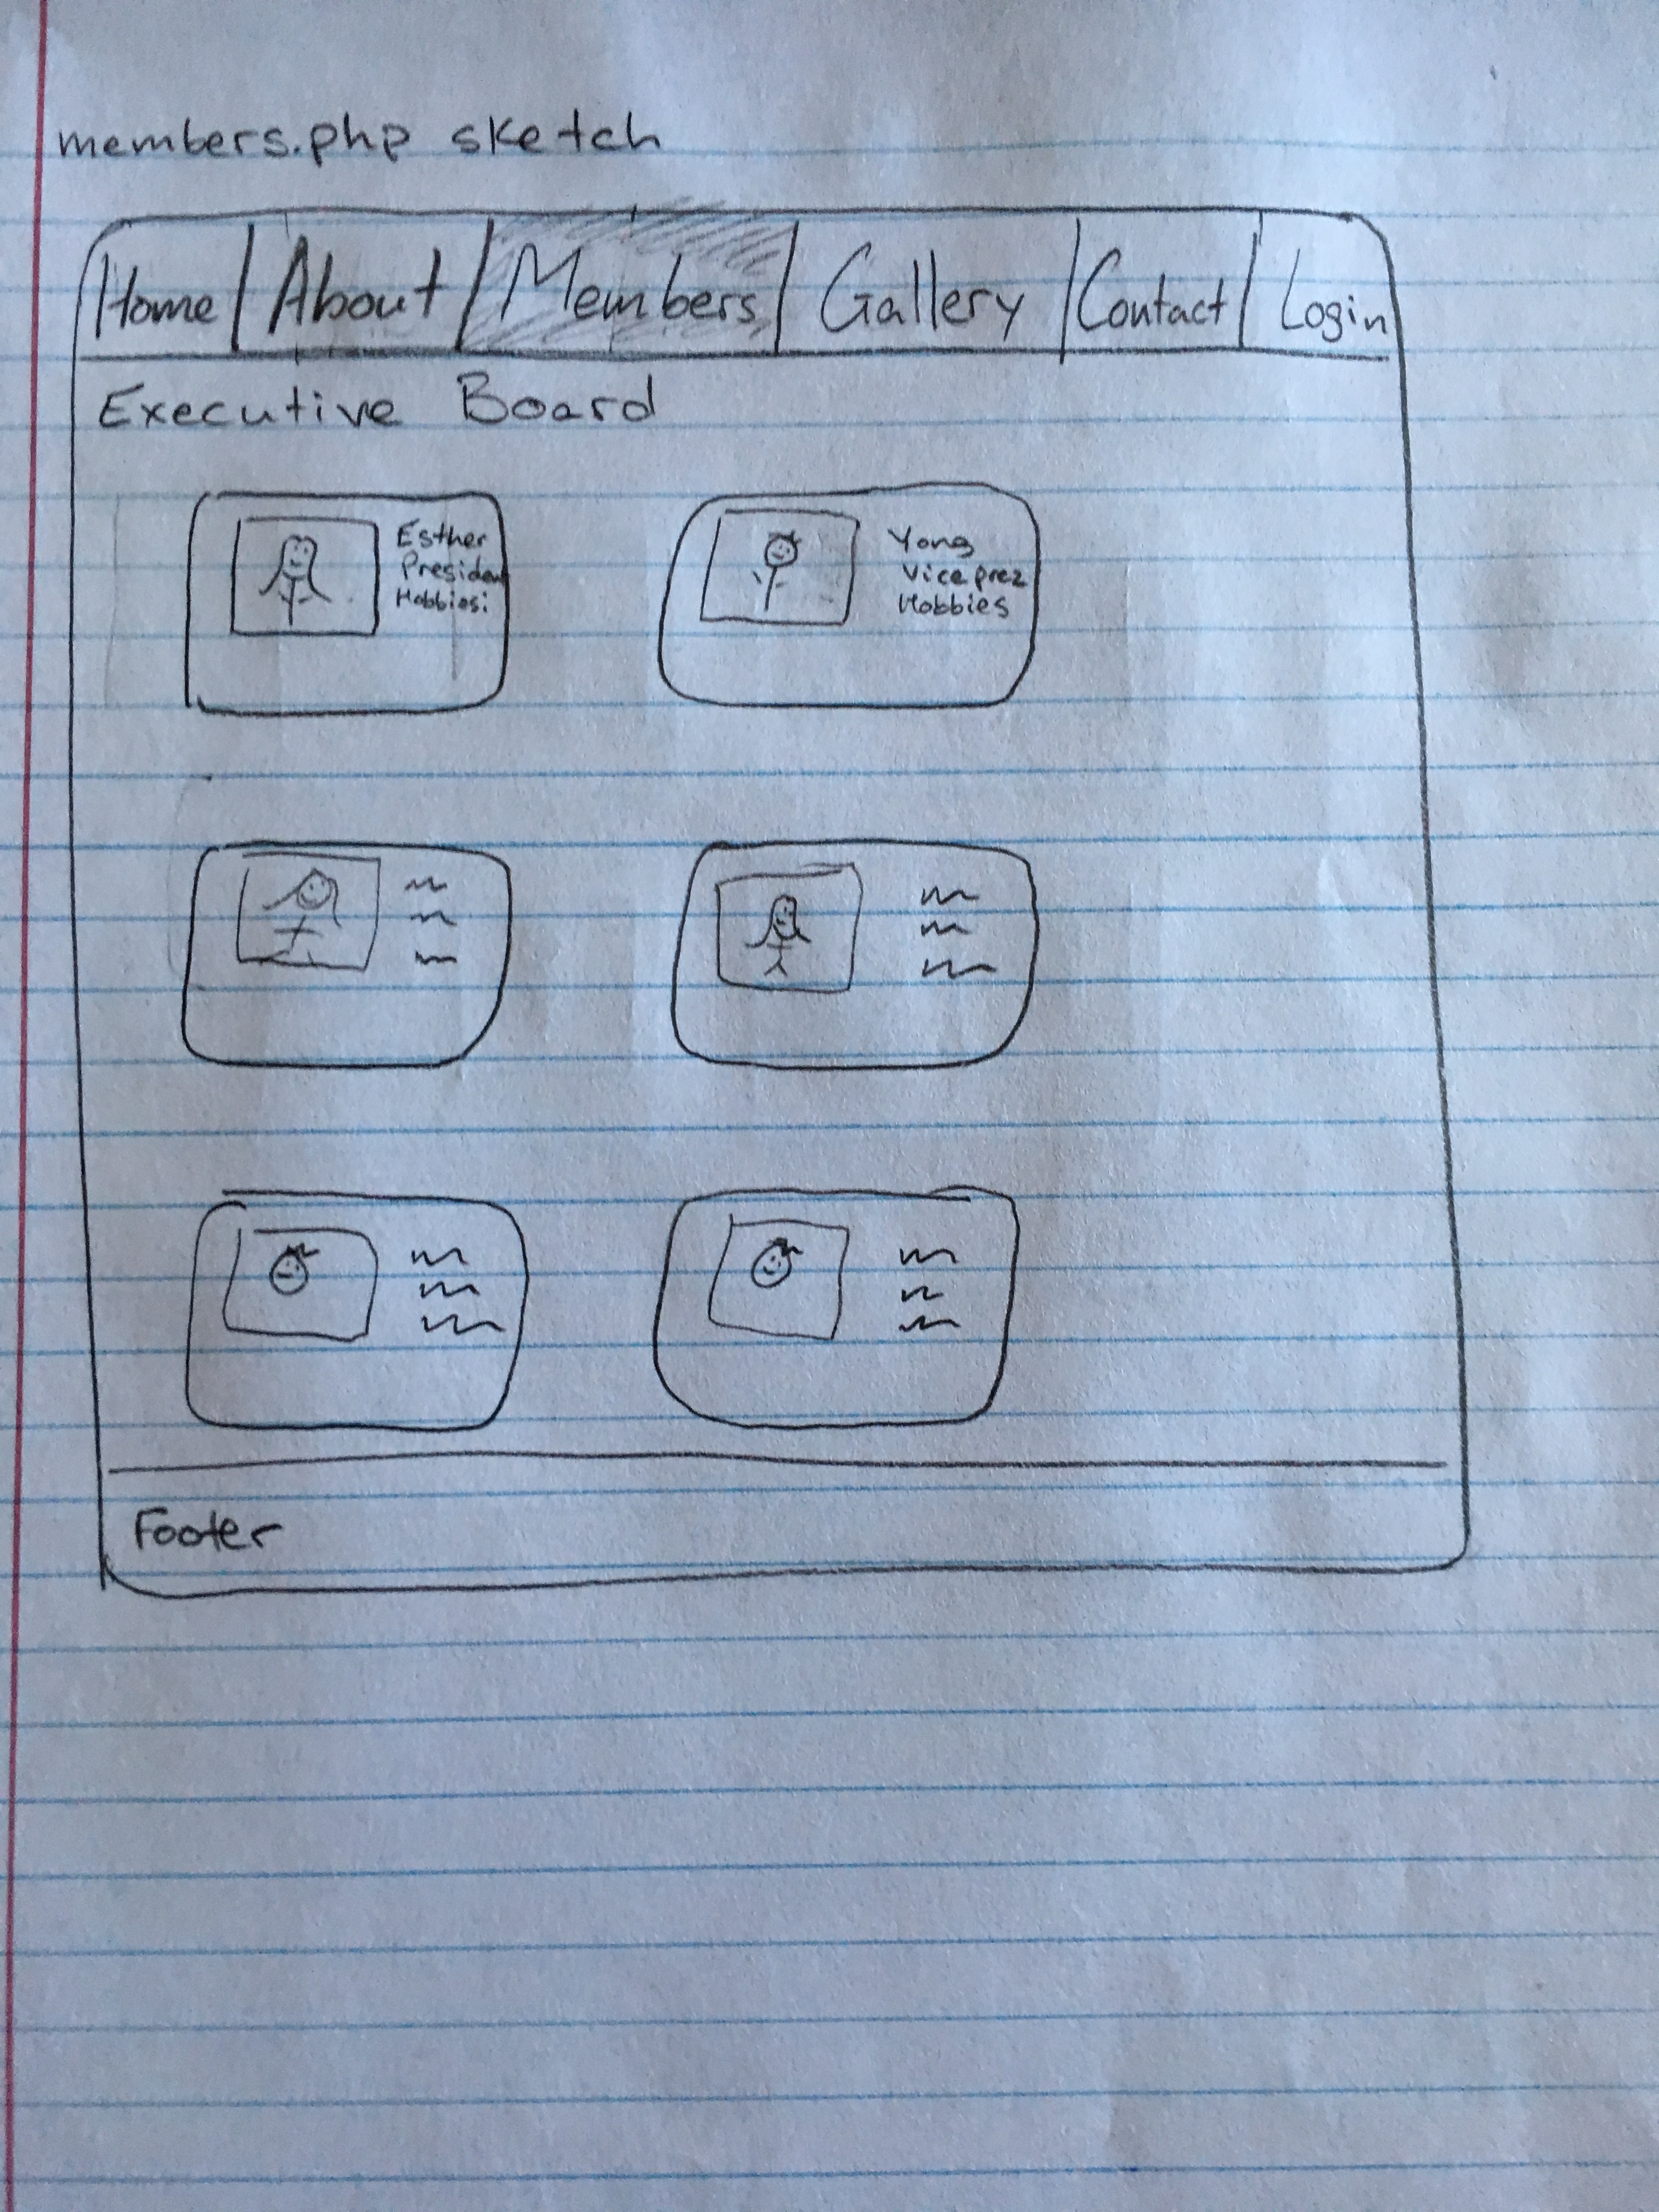 members.php sketch
Home About Members Gallery Contact Login
Executive Board
Esther
Presiden
Hobbies:
Yong
Vice prez
Hobbies
Footer